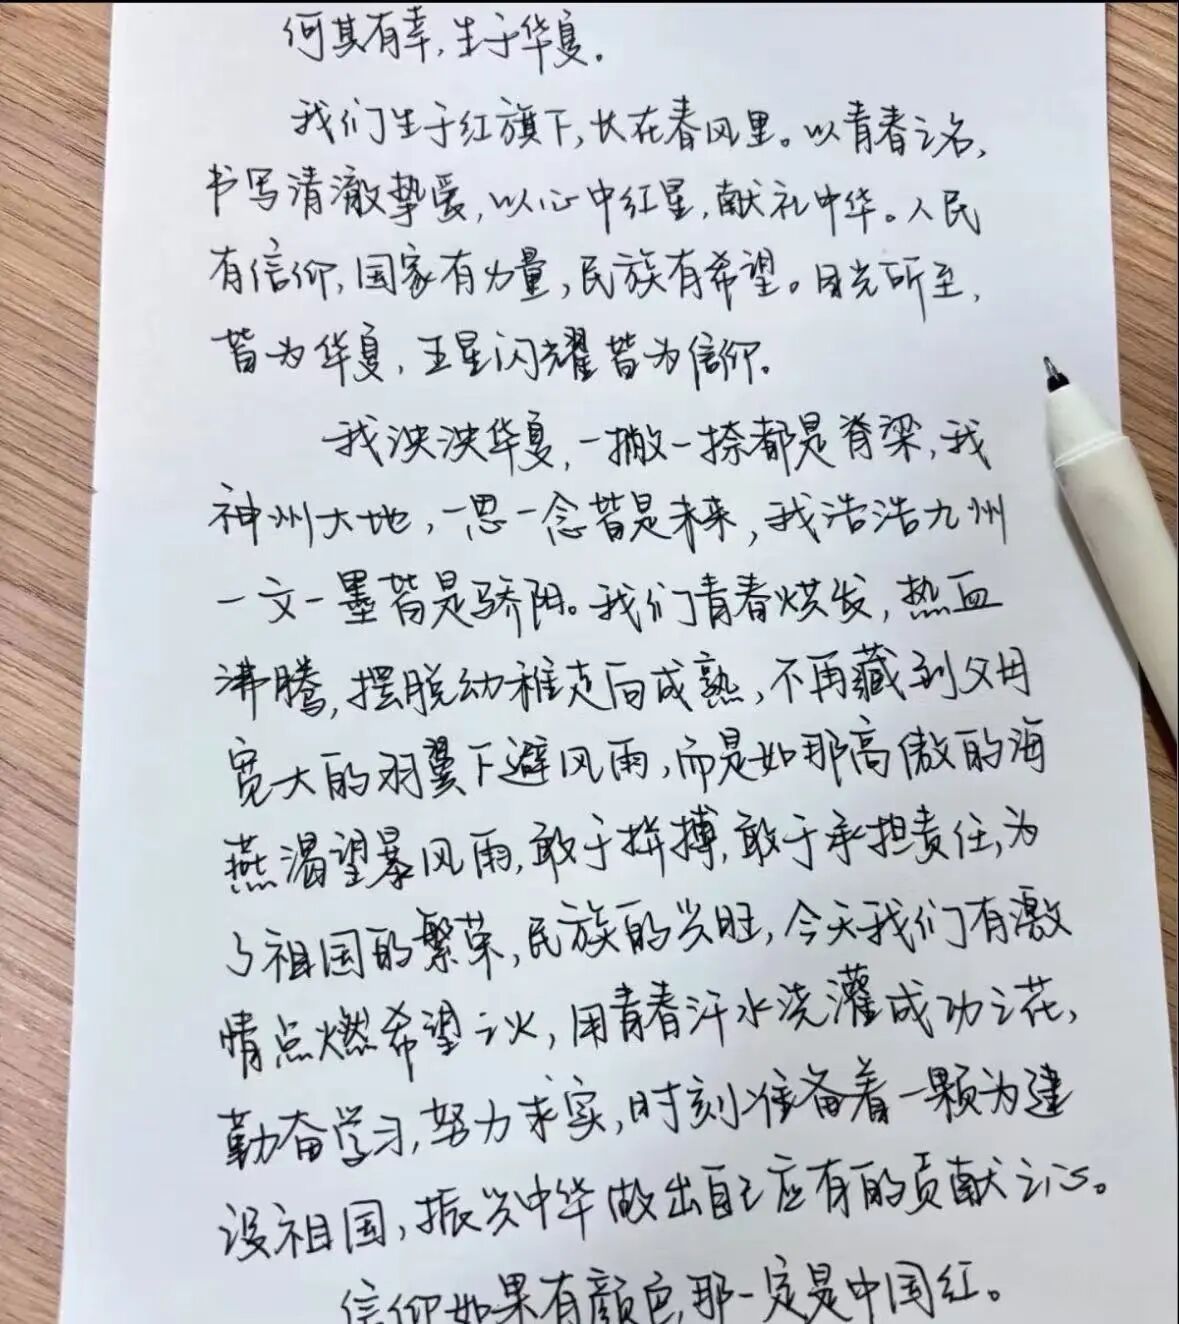 何其有幸,生于华夏。
我们生于红旗下,长在春风里。以青春之名,
书写清澈挚爱,以心中红星,献礼中华。人民
有信仰,国家有力量,民族有希望。目光所至,
皆为华夏,五星闪耀皆为信仰。
我泱泱华夏,一撇一捺都是脊梁,我
神州大地,一思一念皆是未来,我浩浩九州
一文一墨皆是骄阳。我们青春烘发,热血
沸腾,摆脱幼稚走向成熟,不再藏到父母
宽大的羽翼下避风雨,而是如那高傲的海
燕渴望暴风雨,敢于拼搏,敢于承担责任,为
了祖国的繁荣,民族的兴旺,今天我们有激
情点燃希望之火,用青春汗水浇灌成功之花,
勤奋学习,努力求实,时刻准备着一颗为建
设祖国,振兴中华做出自己应有的贡献之心。
信仰如果有颜色,那一定是中国红。